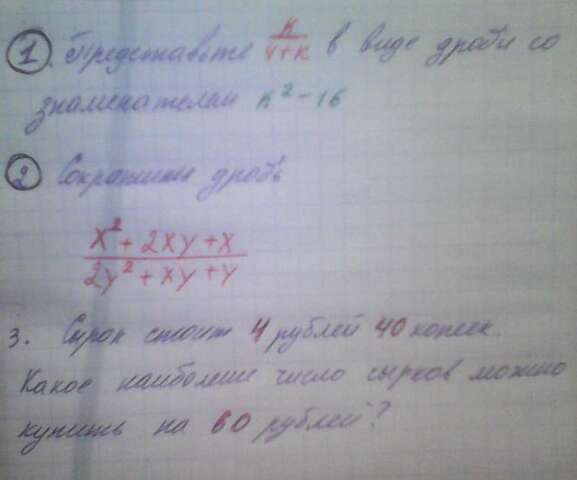 1. Представьте к/4+к в виде дроби со
знаменателем к²-16
2 Сократите дробь
x²+2xy+x
2y²+xy+y
3. Сырок стоит 4 рублей 40 копеек.
Какое наибольшее число сырков можно
купить на 60 рублей?